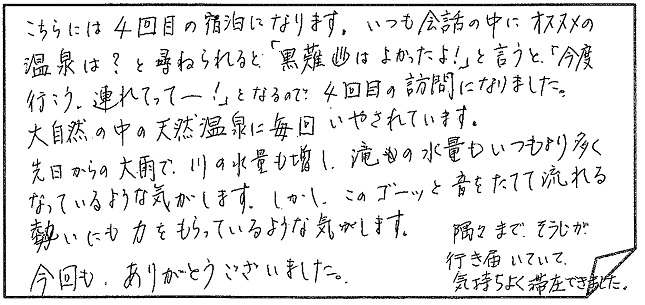 こちらには4回目の宿泊になります。いつも会話の中にオススメの
温泉は？と尋ねられると、「黒薙山はよかったよ！」と言うと、「今度
行こう、連れてってー！」となるので、4回目の訪問になりました。
大自然の中の天然温泉に毎回いやされています。
先日からの大雨で、川の水量も増し、滝もの水量もいつもより多く
なっているような気がします。しかし、このゴーッと音をたてて流れる
勢いにも力をもらっているような気がします。
今回も、ありがとうございました。
隅々まで、そうじが
行き届いていて、
気持ちよく滞在できました。